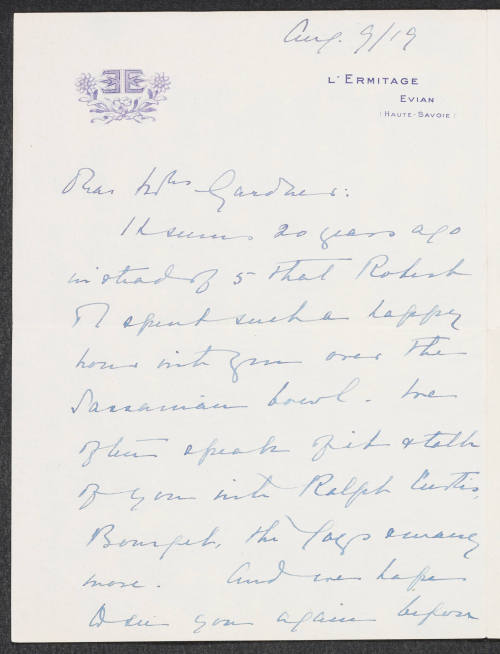 Aug. 9/19
EE
L'ERMITAGE
EVIAN
(HAUTE-SAVOIE)
Dear Mrs Gardner:
It seems 20 years ago
instead of 5 that Robert
& I spent such a happy
hour with you over the
Sassanian bowl. We
often speak of it & talk
of you with Ralph Curtis,
Bourget, the & many
more. And we hope
to see you again before